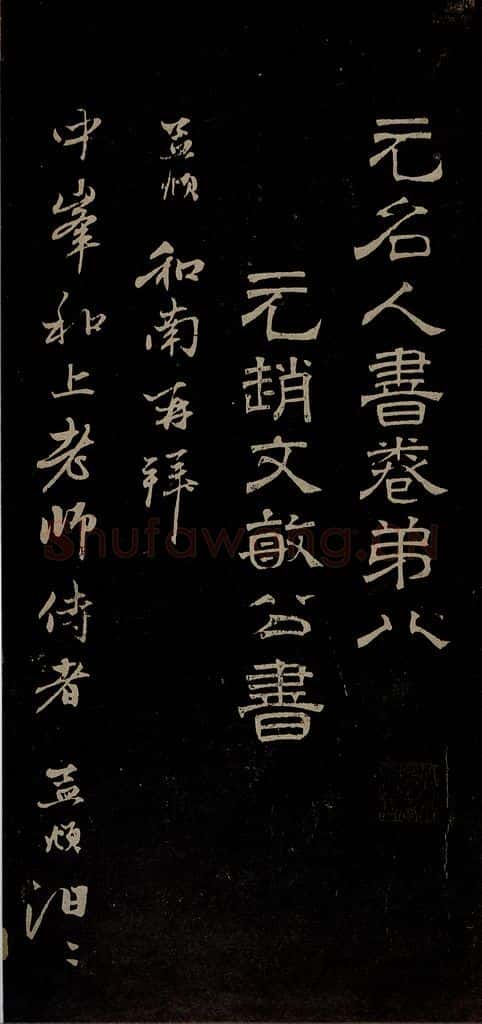 元名人書卷弟八
元趙文敏公書
孟頫 和南再拜
中峯和上老師侍者 孟頫 汩〻
Shufawang.cn